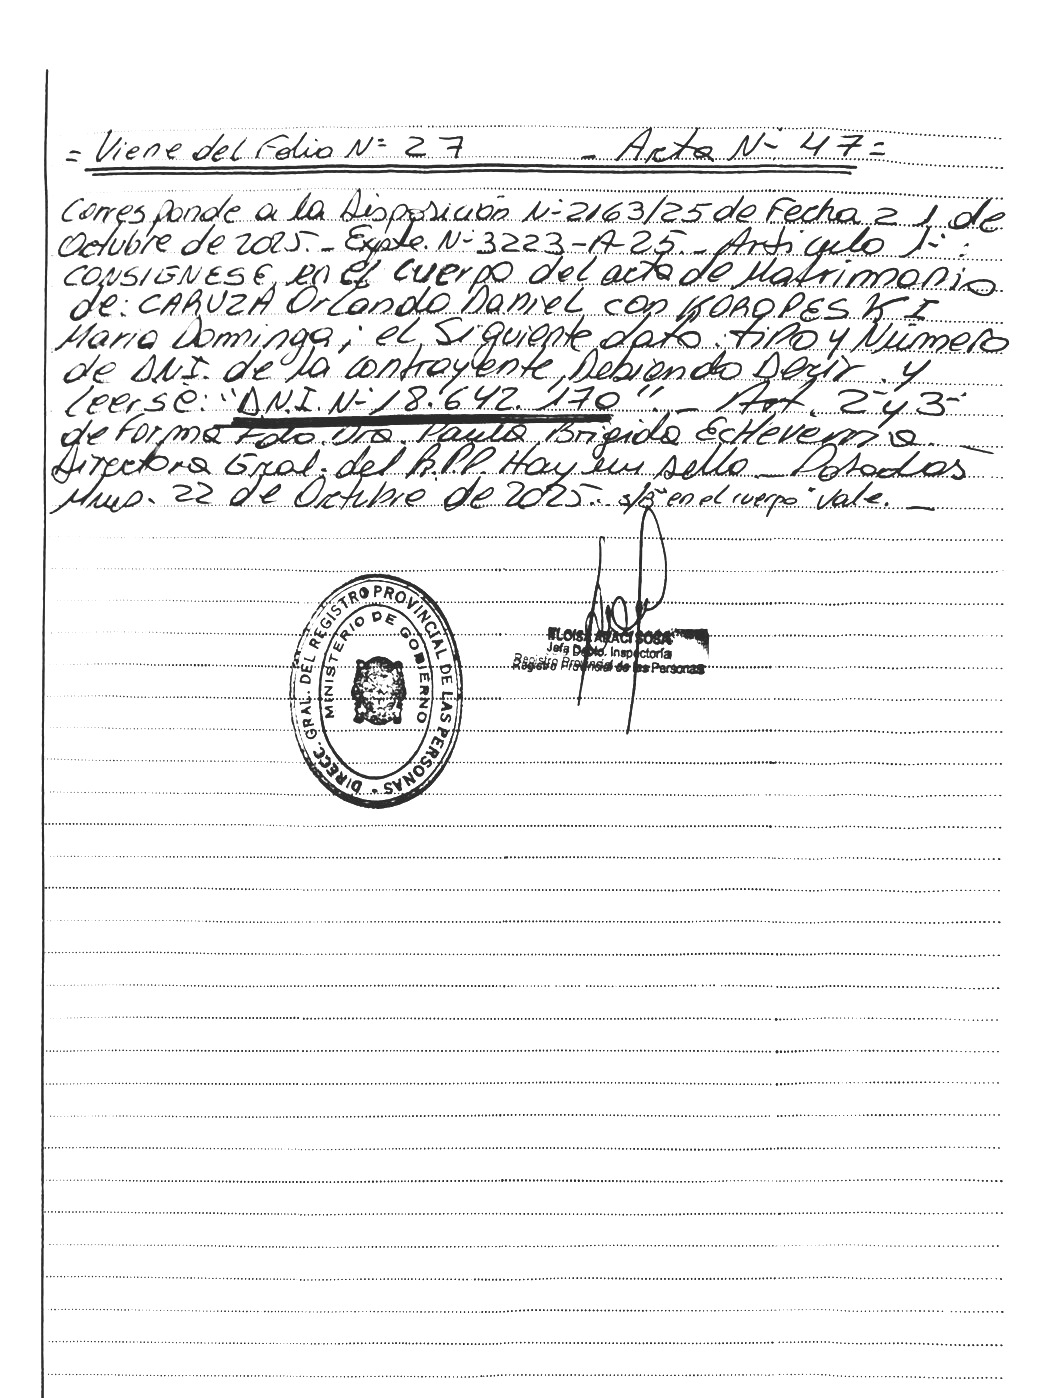 = Viene del Folio Nº 27 - Acta Nº 47 =
Corresponde a la Disposición Nº 2163/25 de Fecha 21 de
Octubre de 2025.- Expte. Nº 3223-A-25.- Artículo 1º:
CONSIGNESE, en el cuerpo del acta de Matrimonio
de: CARUZA Orlando Daniel con KOROPESKI
Maria Dominga; el siguiente dato: tipo y Número
de D.N.I. de la contrayente, Debiendo Decir y
leerse: "D.N.I. Nº 18.642.170".- Art. 2º y 3º
de Forma Fdo. Dra. Paula Brigida Echeverria.-
Directora Gral. del R.P.P. Hay un sello - Posadas
Mnes. 22 de Octubre de 2025.- s/b "en el cuerpo" Vale.-
DIRECC. GRAL. DEL REGISTRO PROVINCIAL DE LAS PERSONAS
MINISTERIO DE GOBIERNO
ELOISA ARACI SOSA
Jefa Depto. Inspectoría
Registro Provincial de las Personas